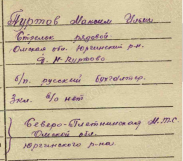 Пуртов Максим
Стрелок рядовой
Омская обл. Юргинский р-н.
Д. Н-Пуртово
б/п. русский бухгалтер.
Зкл. в/о нет
Северо-Плетневская М.Т.С.
Омской обл.
Юргинского р-на.